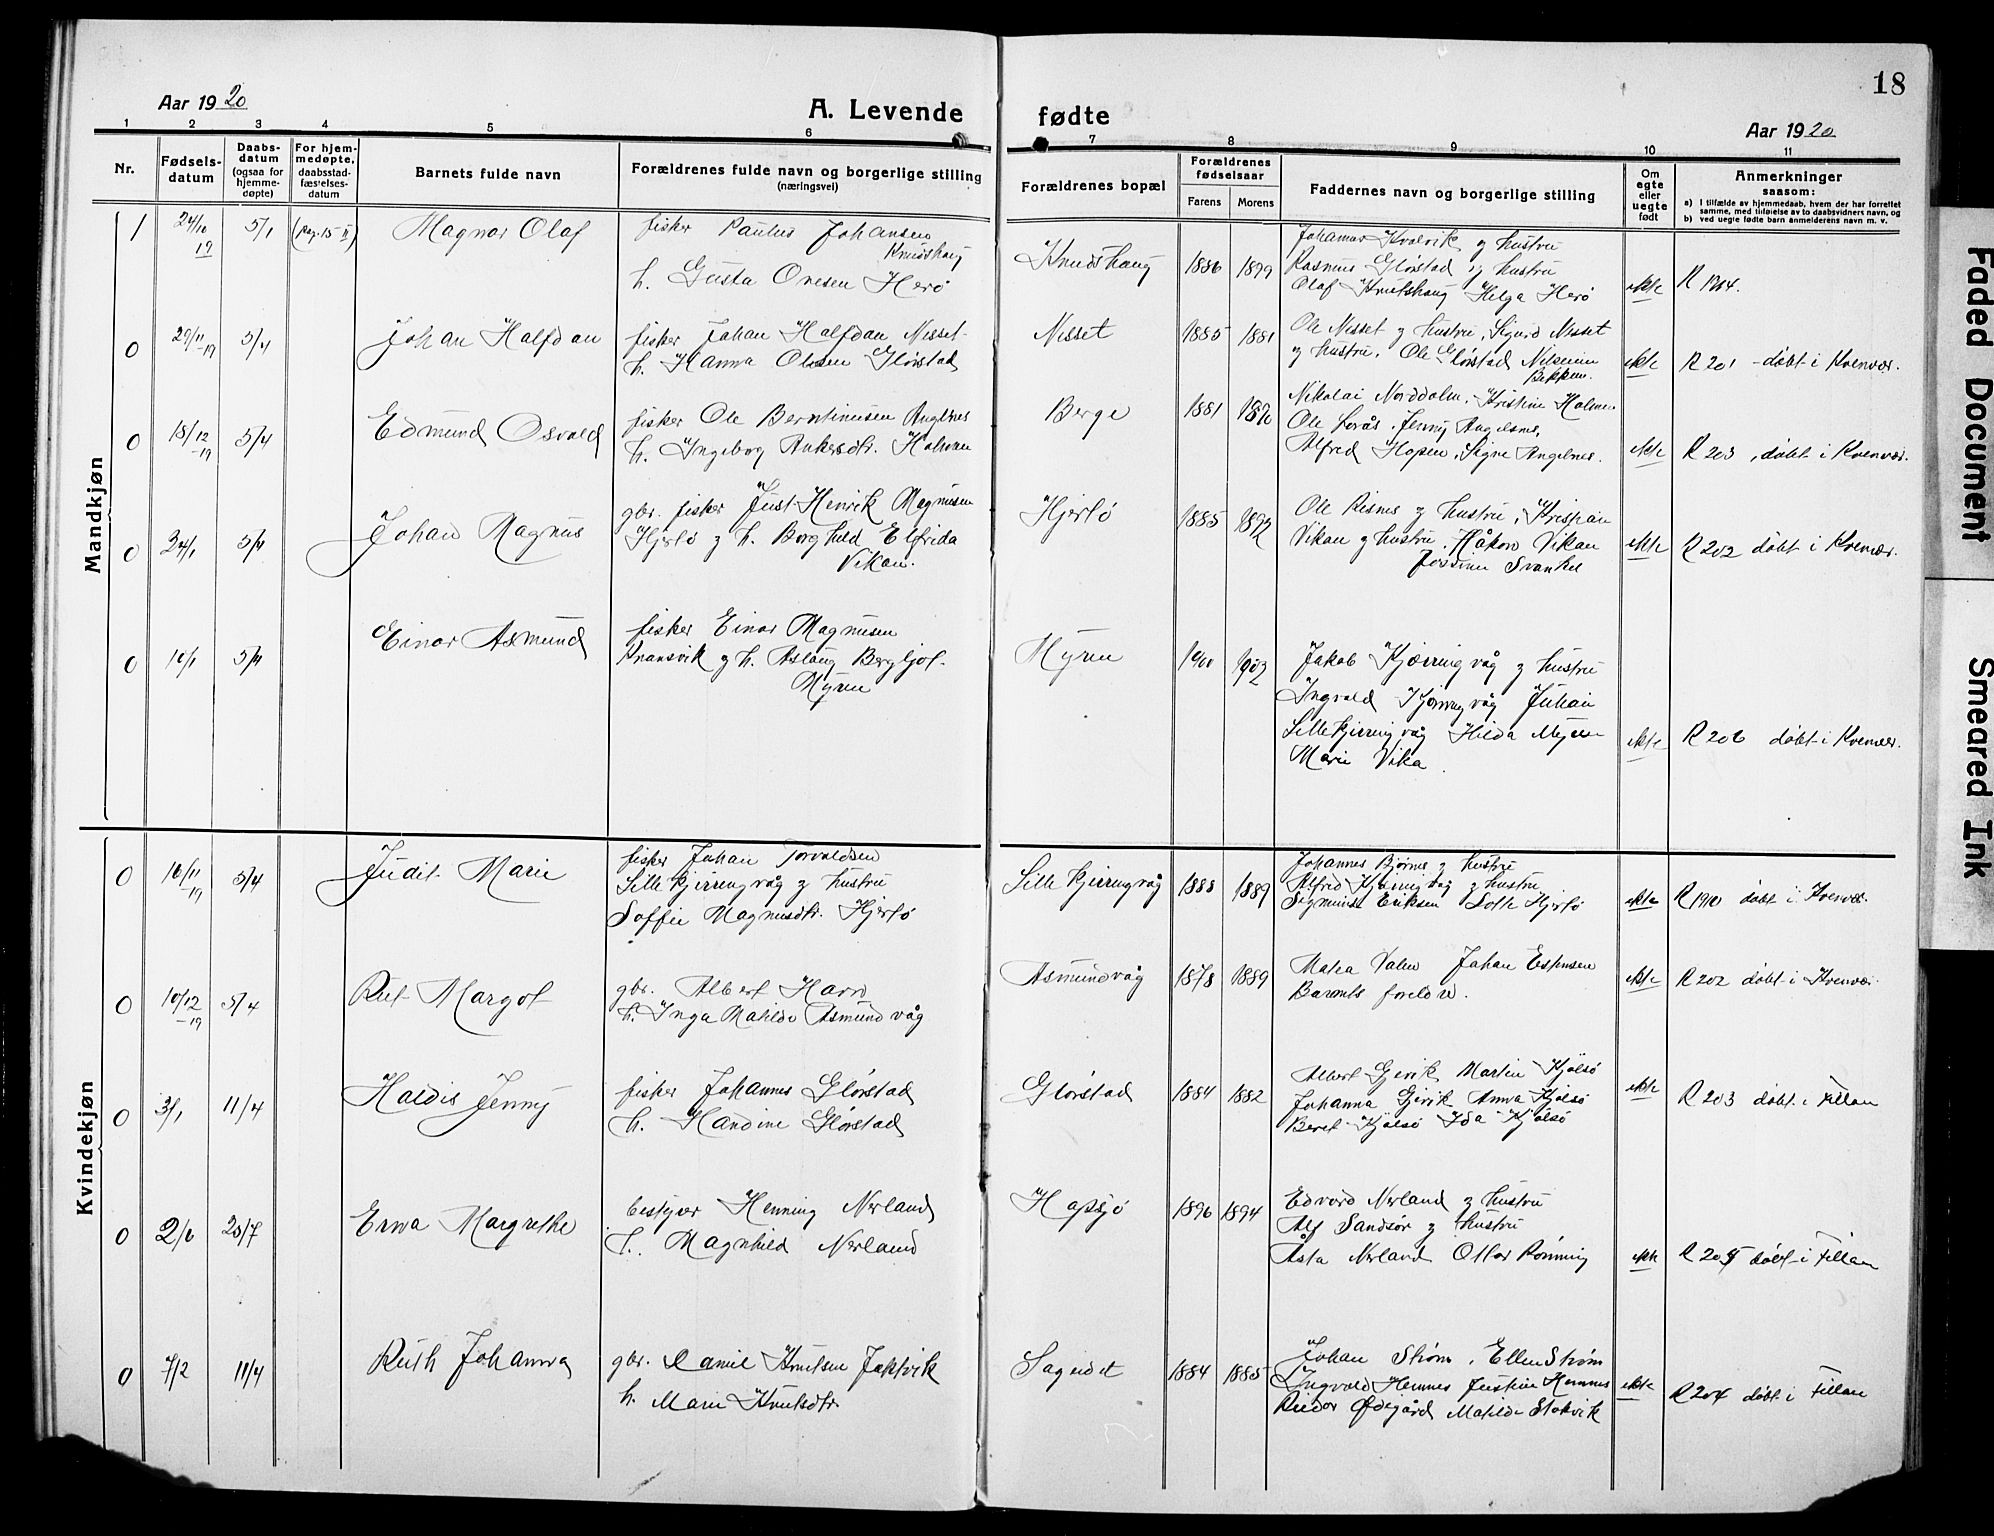 18
Aar 1920
A. Levende
fødte
Aar 1920
1 2 3 4 5 6 7 8 9 10 11
Nr.
Fødsels-
datum
Daabs-
datum
(ogsaa for
hjemme-
døpte)
For hjem-
medøpte,
daabsstad-
fæstelses-
datum
Barnets fulde navn
Forældrenes fulde navn og borgerlige stilling
(næringsvei)
Forældrenes bopæl
Forældrenes
fødselsaar
Farens
Morens
Faddernes navn og borgerlige stilling
Om
egte
eller
uegte
født
Anmerkninger
saasom:
a) I tilfælde av hjemmedaab, hvem der har forrettet
samme, med tilføielse av to daabsvidners navn, og
b) ved uegte fødte barn anmelderens navn m. v.
Mandkjøn
1 24/10 19 5/1 Magnar Olaf
fisker Paulus Johansen
Knudshaug
h. Gusta Ovesen Herö
Knudshaug 1886 1899
Johannes Kvalvik og hustru
Rasmus Glørstad og hustru
Olaf Knutshaug Helga Herö
ekte
0 29/11 -19 5/4 Johan Halfdan
fisker Johan Halfdan Nisset
h. Hanna Olsen Glørstad
Nisset 1885 1881
Ole Nisset og hustru, Sigurd Nisset
og hustru. Ole Glørstad Nilsine
Bekken.
ekte R 201 - døbt i Kvenvær.
0 18/12 -19 5/4 Edmund Osvald
fisker Ole Berntinusen Angelnes
h. Ingeborg Ankersdtr.
Berge 1881
Nikolai Norddolm, Kristine Holmen
Ole Lerås, Jenny Angelnes,
Alfred Hopen, Signe Angelnes.
ekte R 203, døbt i Kvenvær.
0 24/1 5/4 Johan Magnus
gbr. fisker Just Henrik Magnusen
Hjertø og h. Borghild Elfrida
Vikan.
Hjertø 1885 1892
Ole Risnes og hustru, Kristian
Vikan og hustru, Håkon Vikan
Jossine Svankil
ekte R 202 døbt i Kvenvær.
0 10/1 5/4 Einar Asmund
fisker Einar Magnusen
Kransvik og h. Aslaug Bergljot
Myren
Myren 1900 1902
Jakob Kjerringvåg og hustru
Ingvald Kjerringvåg Julian
Lillekjerringvåg Hilda Myren
Marie Vika.
ekte R 206 døbt i Kvenvær.
Kvindekjøn
0 16/11 -19 5/4 Judit Marie
fisker Johan Torvaldsen
Lillekjerringvåg og hustru
Soffie Magnusdtr. Hjertø
Lillekjerringvåg 1888 1889
Johannes Bjørnes og hustru
Alfred Kjerringvåg og hustru
Sigmund Eriksen Lotte Hjertø
ekte døbt i Kvenvær.
0 10/12 -19 5/4 Rut Margot
gbr. Albert Havn
h. Inga Matilde Asmundvåg
Asmundvåg 1878 1889
Matea Valen Johan Espensen
Barnets foreldre.
ekte R 202 døbt i Kvenvær.
0 3/1 11/4 Haldis Jenny
fisker Johannes Glørstad
h. Handine Glørstad
Glørstad 1884 1882
Albert Gjevik Martin Kjølsø
Johanna Gjevik Anna Kjølsø
Beret Kjølsø Ida Kjølsø
ekte R 203 døbt i Fillan
0 2/6 20/7 Erna Margrethe
bestyrer Henning Nerland
h. Magnhild Nerland
Hopsjø 1896 1894
Edvard Nerland og hustru
Alf Sandsør og hustru
Åsta Nerland Ottar Rönning
ekte R 205 døbt i Fillan
0 7/2 11/4 Ruth Johanna
gbr. Daniel Knutsen Jøstvik
h. Marie Knutsdtr.
Sageidet 1884 1885
Johan Strøm, Ellen Strøm
Ingvald Hemnes Justine Hemnes
Reidar Ødegård Matilde Stokvik
ekte R 204 døbt i Fillan
Faded Document
Smeared Ink